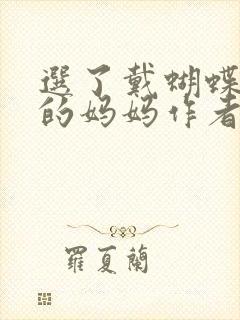 選了戴蝴蝶
的妈妈作者
羅夏蘭